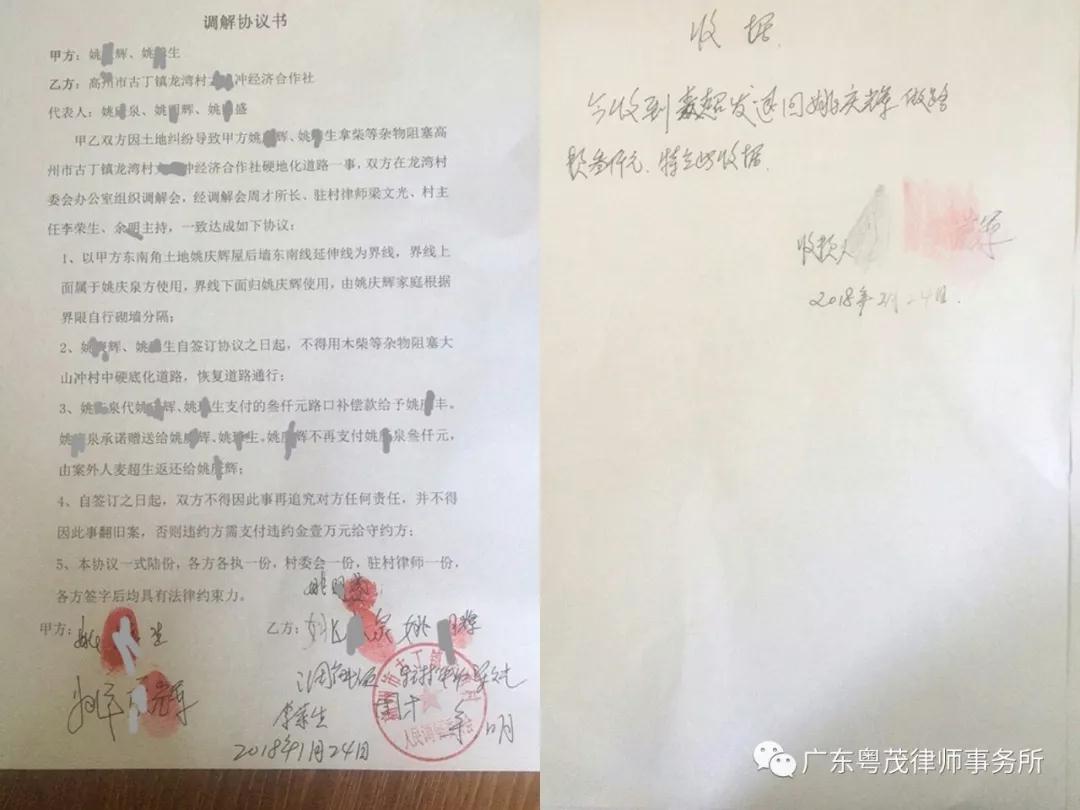 调解协议书
甲方：姚 辉、姚 生
乙方：高州市古丁镇龙湾村 冲经济合作社
代表人：姚 泉、姚 辉、姚 盛
甲乙双方因土地纠纷导致甲方姚 辉、姚 生拿柴等杂物阻塞高
州市古丁镇龙湾村 冲经济合作社硬地化道路一事，双方在龙湾村
委会办公室组织调解会，经调解会周才所长、驻村律师梁文光、村主
任李荣生、余明主持，一致达成如下协议：
1、以甲方东南角土地姚庆辉屋后墙东南线延伸线为界线，界线上
面属于姚庆泉方使用，界线下面归姚庆辉使用，由姚庆辉家庭根据
界限自行砌墙分隔；
2、姚 辉、姚 生自签订协议之日起，不得用木柴等杂物阻塞大
山冲村中硬底化道路，恢复道路通行；
3、姚 泉代姚 辉、姚 生支付的叁仟元路口补偿款给予姚 丰。
姚 泉承诺赠送给姚 辉、姚 生。姚 辉不再支付姚 泉叁仟元，
由案外人麦超生返还给姚 辉；
4、自签订之日起，双方不得因此事再追究对方任何责任，并不得
因此事翻旧案，否则违约方需支付违约金壹万元给守约方；
5、本协议一式陆份，各方各执一份，村委会一份，驻村律师一份，
各方签字后均具有法律约束力。
姚明盛
甲方：姚 生
乙方： 泉 姚 辉
姚 辉
梁文光
李荣生
人民调解委员会
2018年1月24日
收据
今收到 超发还回姚庆辉做路
款叁仟元.特立此收据.
收款人 辉
2018年 月24日.
广东粤茂律师事务所